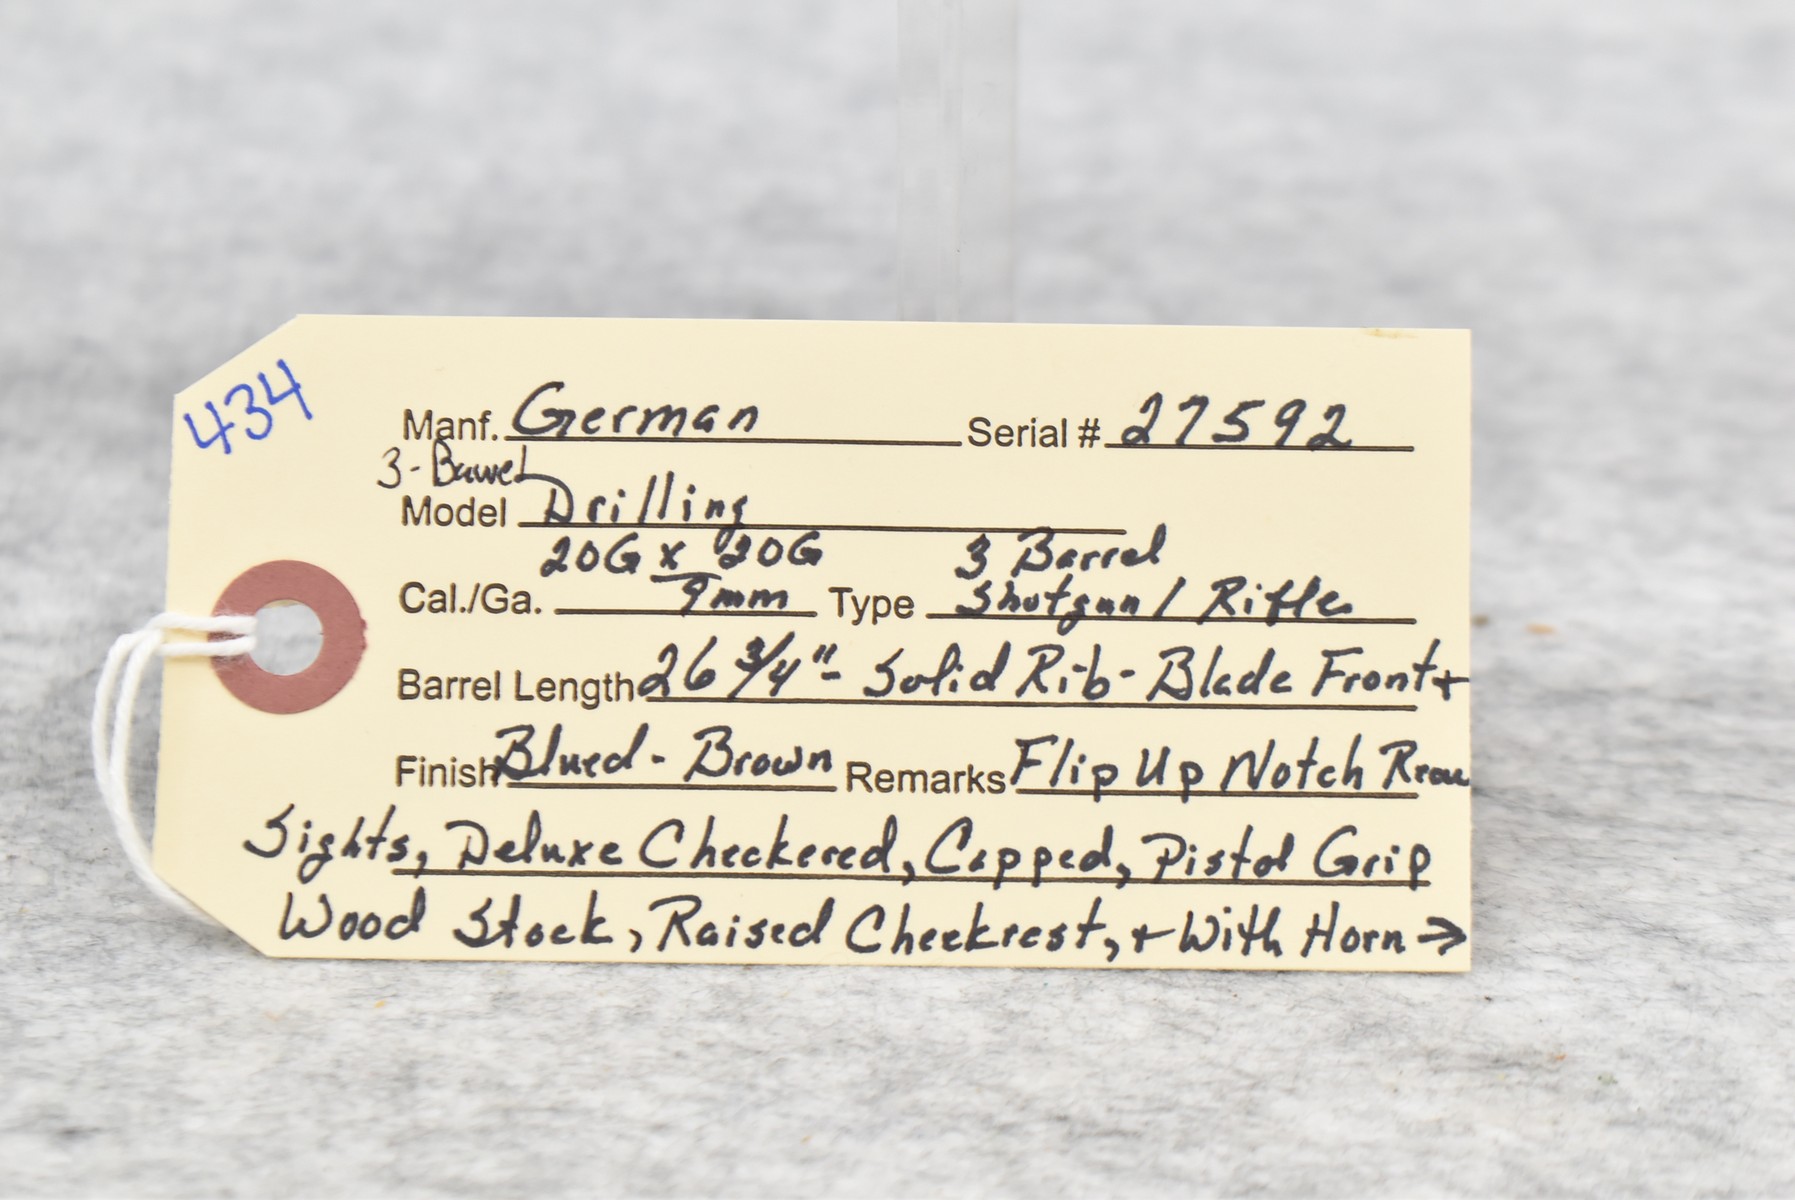 434
Manf. German Serial # 27592
3-Barrel
Model Drilling
20G x 20G 3 Barrel
Cal./Ga. 9mm Type Shotgun / Rifle
Barrel Length 26 3/4" - Solid Rib - Blade Front +
Finish Blued - Brown Remarks Flip Up Notch Rear
Sights, Deluxe Checkered, Capped, Pistol Grip
Wood Stock, Raised Cheekrest, + With Horn →